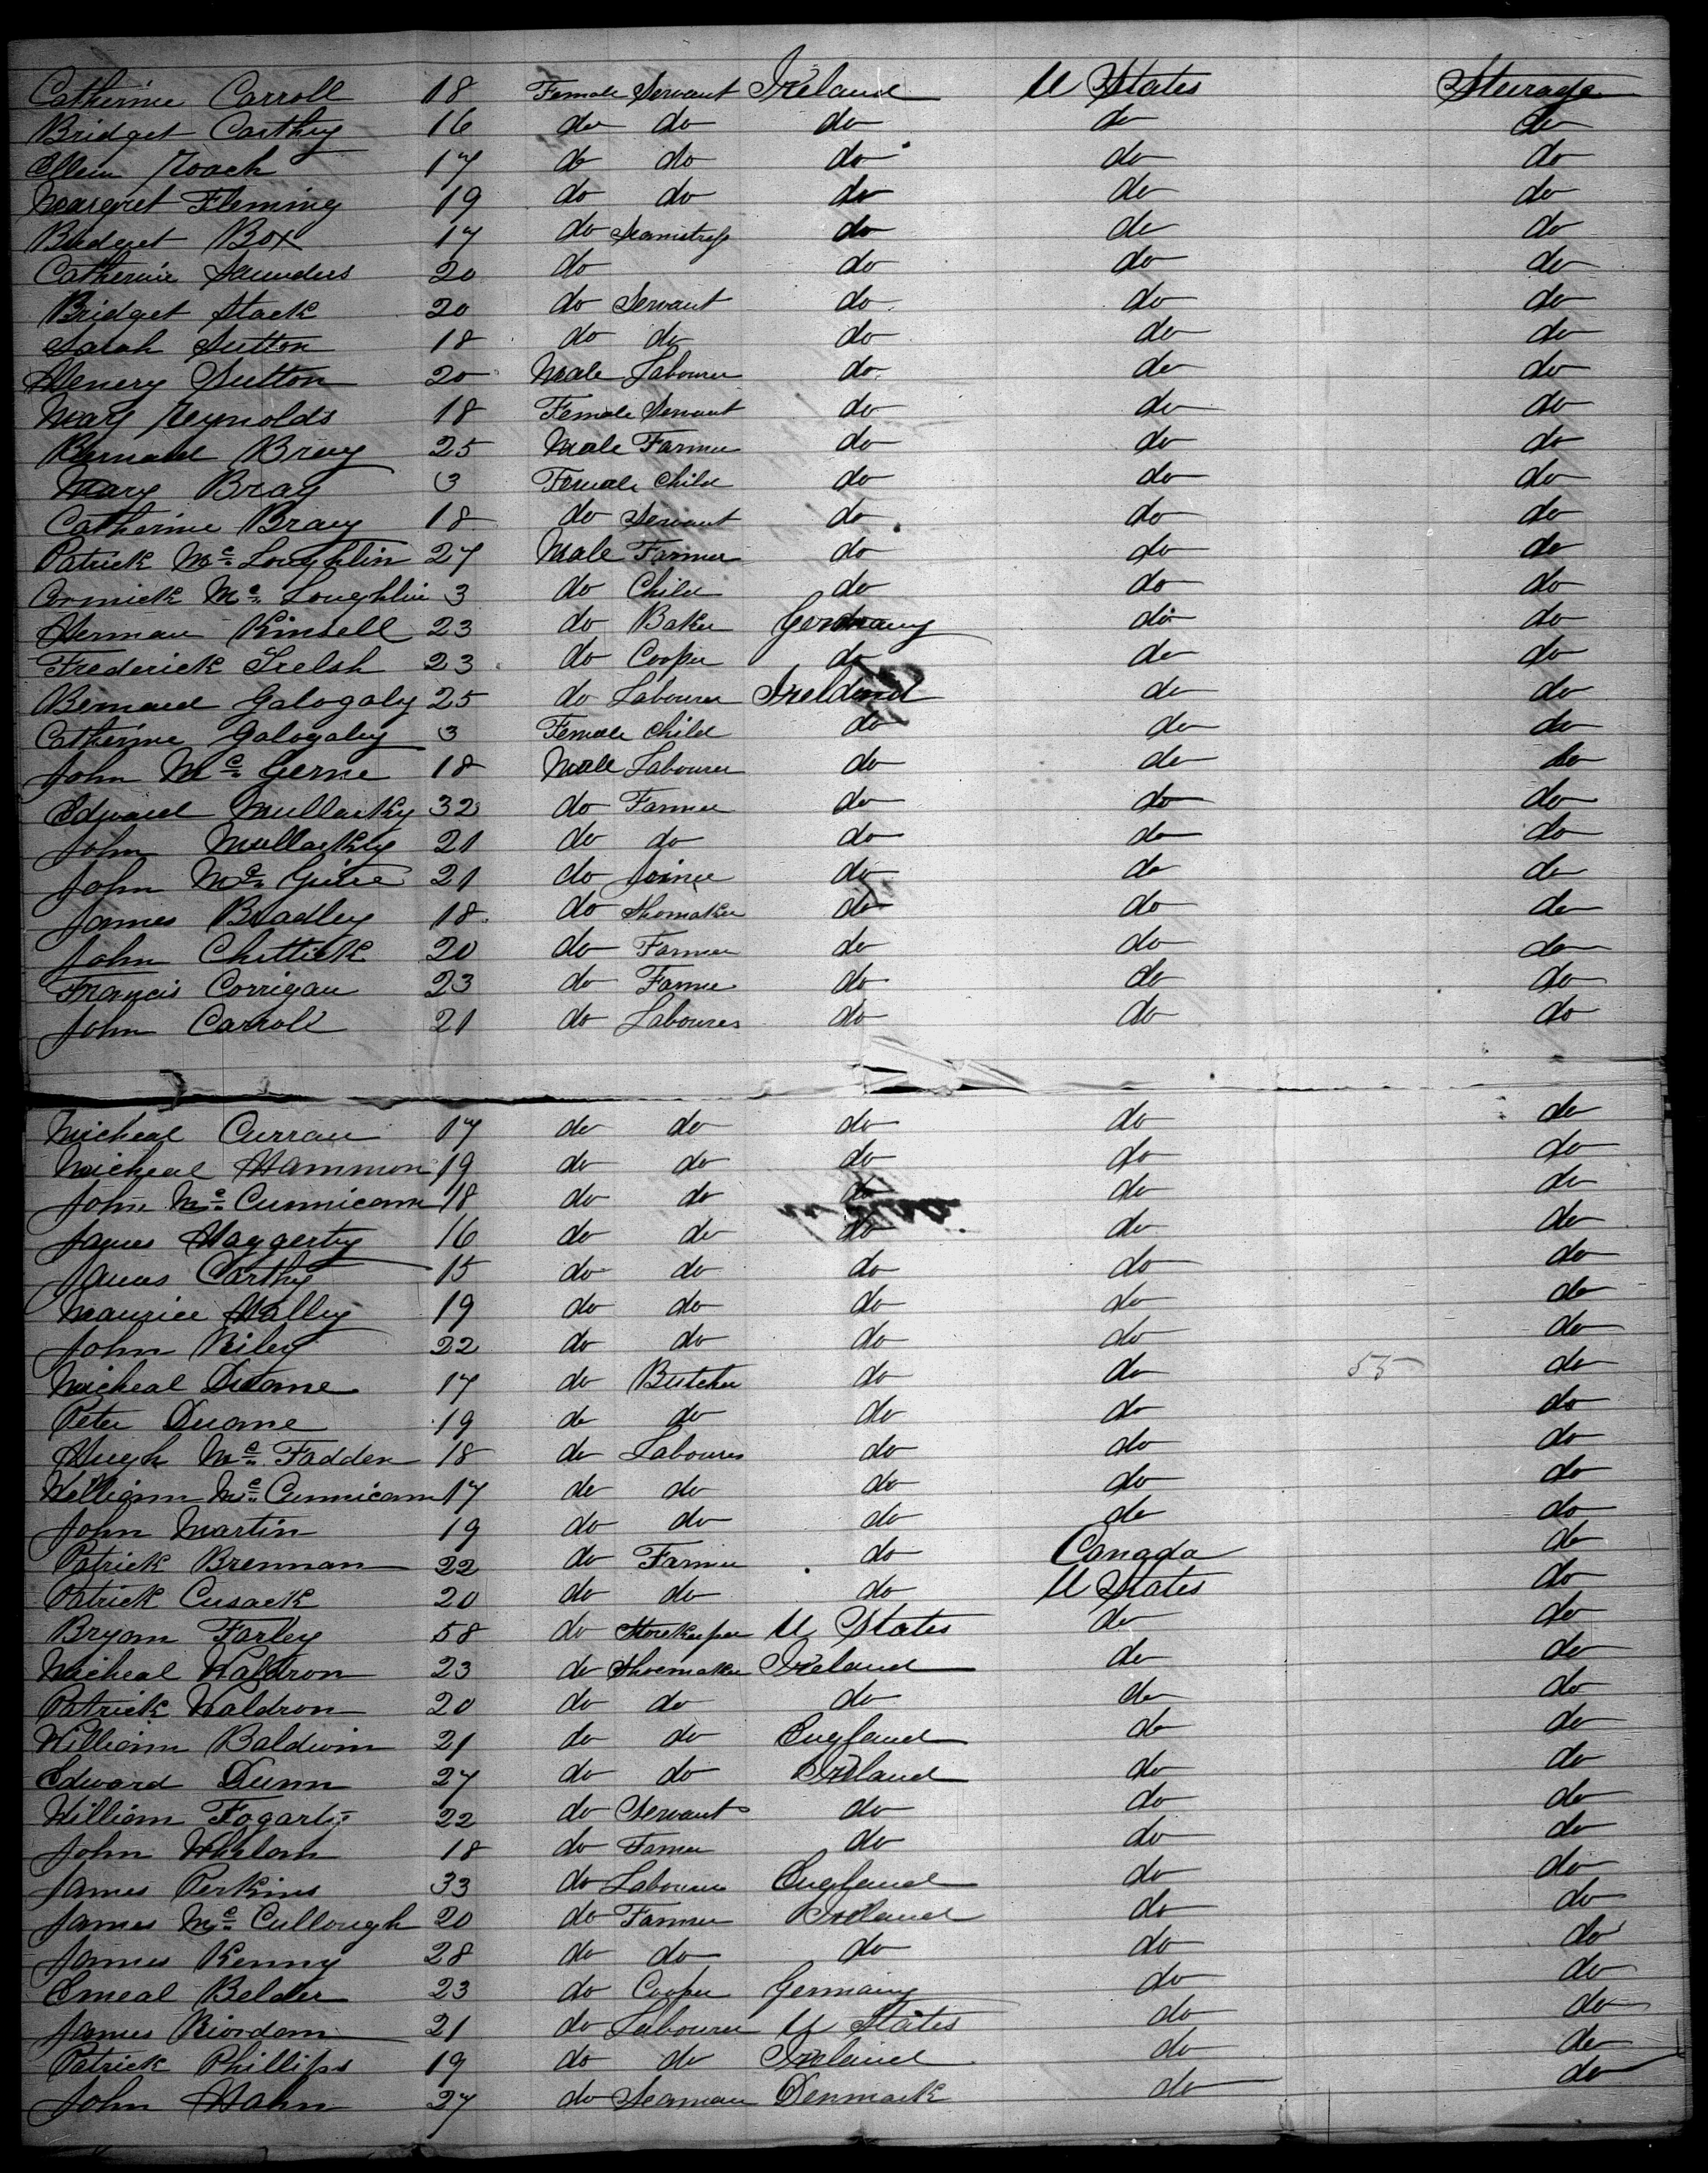 Catherine Carroll 18 Female Servant Ireland U States Steerage
Bridget Carthy 16 do do do do do
Ellen Roach 17 do do do do do
Margret Fleming 19 do do do do do
Bridget Box 17 do Seamstress do do do
Catherine Saunders 20 do do do do
Bridget Stack 20 do Servant do do do
Sarah Sutton 18 do do do do do
Henery Sutton 20 Male Labourer do do do
Mary Reynolds 18 Female Servant do do do
Bernard Bray 25 Male Farmer do do do
Mary Bray 3 Female Child do do do
Catherine Bray 18 do Servant do do do
Patrick Mc Loughlin 27 Male Farmer do do do
Cormick Mc Loughlin 3 do Child do do do
Herman Kinsell 23 do Baker Germany do do
Frederick Trelsh 23 do Cooper do do do
Bernard Galogaly 25 do Labourer Ireland do do
Catherine Galogaly 3 Female Child do do do
John Mc Gerne 18 Male Labourer do do do
Edward Mullarky 32 do Farmer do do do
John Mullarky 21 do do do do do
John Mc 21 do Joiner do do do
James Bradley 18 do Shomaker do do do
John Chittick 20 do Farmer do do do
Francis Corrigan 23 do Farmer do do do
John Carroll 21 do Labourer do do do
Micheal Curran 17 do do do do do
Micheal Hammon 19 do do do do do
John Mc Cunnicann 18 do do do do do
James Haggerty 16 do do do do do
James Carthy 15 do do do do do
Maurice Halley 19 do do do do do
John Riley 22 do do do do do
Micheal Duane 17 do Butcher do do 55 do
Peter Duane 19 do do do do do
Hugh Mc Fadden 18 do Labourer do do do
William Mc Cunnicann 17 do do do do do
John Martin 19 do do do do do
Patrick Brennan 22 do Farmer do Canada do
Patrick Cusack 20 do do do U States do
Bryan Farley 58 do Storekeeper U States do do
Micheal Waldron 23 do Shoemaker Ireland do do
Patrick Waldron 20 do do do do do
William Baldwin 21 do do England do do
Edward Dunn 27 do do Ireland do do
William Fogarty 22 do Servant do do do
John Whelan 18 do Farmer do do do
James Perkins 33 do Labourer England do do
James Mc Cullough 20 do Farmer Ireland do do
James Kenny 28 do do do do do
Emeal Belder 23 do Cooper Germany do do
James Riordan 21 do Labourer U States do do
Patrick Phillips 19 do do Ireland do do
John Hahn 27 do Seaman Denmark do do